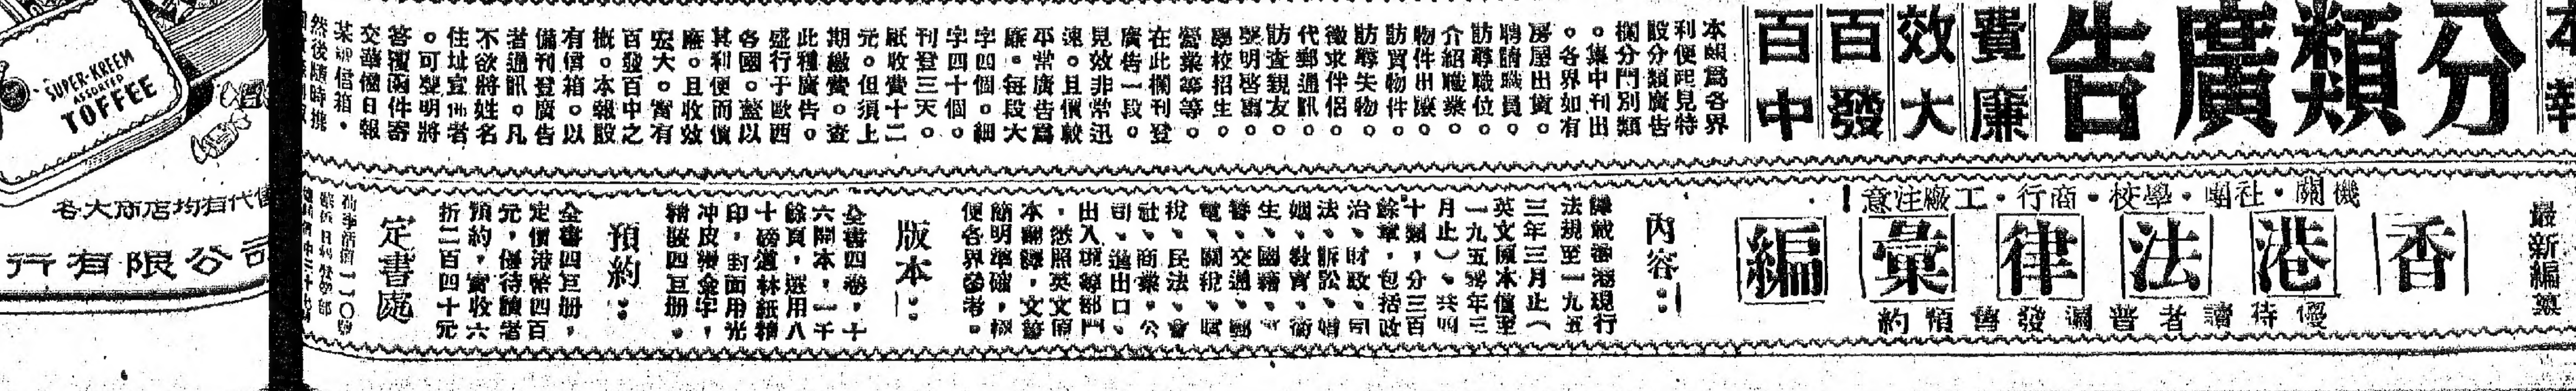 本報
分類廣告
費廉
效大
百發
百中
本報爲各界
利便起見特
設分類廣告
欄分門別類
。集中刊出
。各界如有
房屋出賃。
聘請職員。
訪尋職位。
介紹職業。
物件出讓。
訪買物件。
訪尋失物。
徵求伴侶。
代郵通訊。
訪查親友。
聲明啓事。
學校招生。
營業等等。
在此欄刊登
廣告一段。
見效非常迅
速。且價較
平常廣告爲
廉。每段大
字四個。細
字四十個。
刊登三天。
祇收費十二
元。但須上
期繳費。查
此種廣告。
盛行于歐西
各國。蓋以
其利便而價
廉。且收效
宏大。實有
百發百中之
概。本報設
有信箱。以
備刊登廣告
者通訊。凡
不欲將姓名
住址宣佈者
。可聲明將
答覆函件寄
交華僑日報
某 信箱。
然後隨時挑
最新編纂
機關・社團・學校・商行・工廠注意
香港法律彙編
優待讀者普 發售預約
內容：
 載香港現行
法規至一九五
三年三月止（
英文原本僅至
一九五 年三
月止）、共四
十類，分三百
餘章，包括政
治、財政、司
法、訴訟、婚
姻、教育、衞
生、國籍、
 、交通、郵
電、關稅、
稅、民法、會
社、商業、公
司、進出口、
出入境等部門
，悉照英文原
本翻譯，文
簡明準確，極
便各界參考。
版本：
全書四卷，十
六開本，一千
餘頁，選用八
十磅道林紙精
印，封面用光
冲皮 金字，
精裝四巨册。
預約：
全書四巨册，
定價港幣四百
元，優待讀者
預約，實收六
折二百四十元
定書處
SUPER-KREEM
ASSORTED
TOFFEE
各大商店均有代售
行有限公司